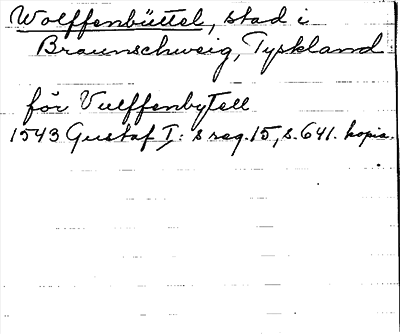 Wolffenbüttel, stad i
Braunschweig, Tyskland
för Vulffenbytell
1543 Gustaf I: s reg. 15, s. 641. kopia.